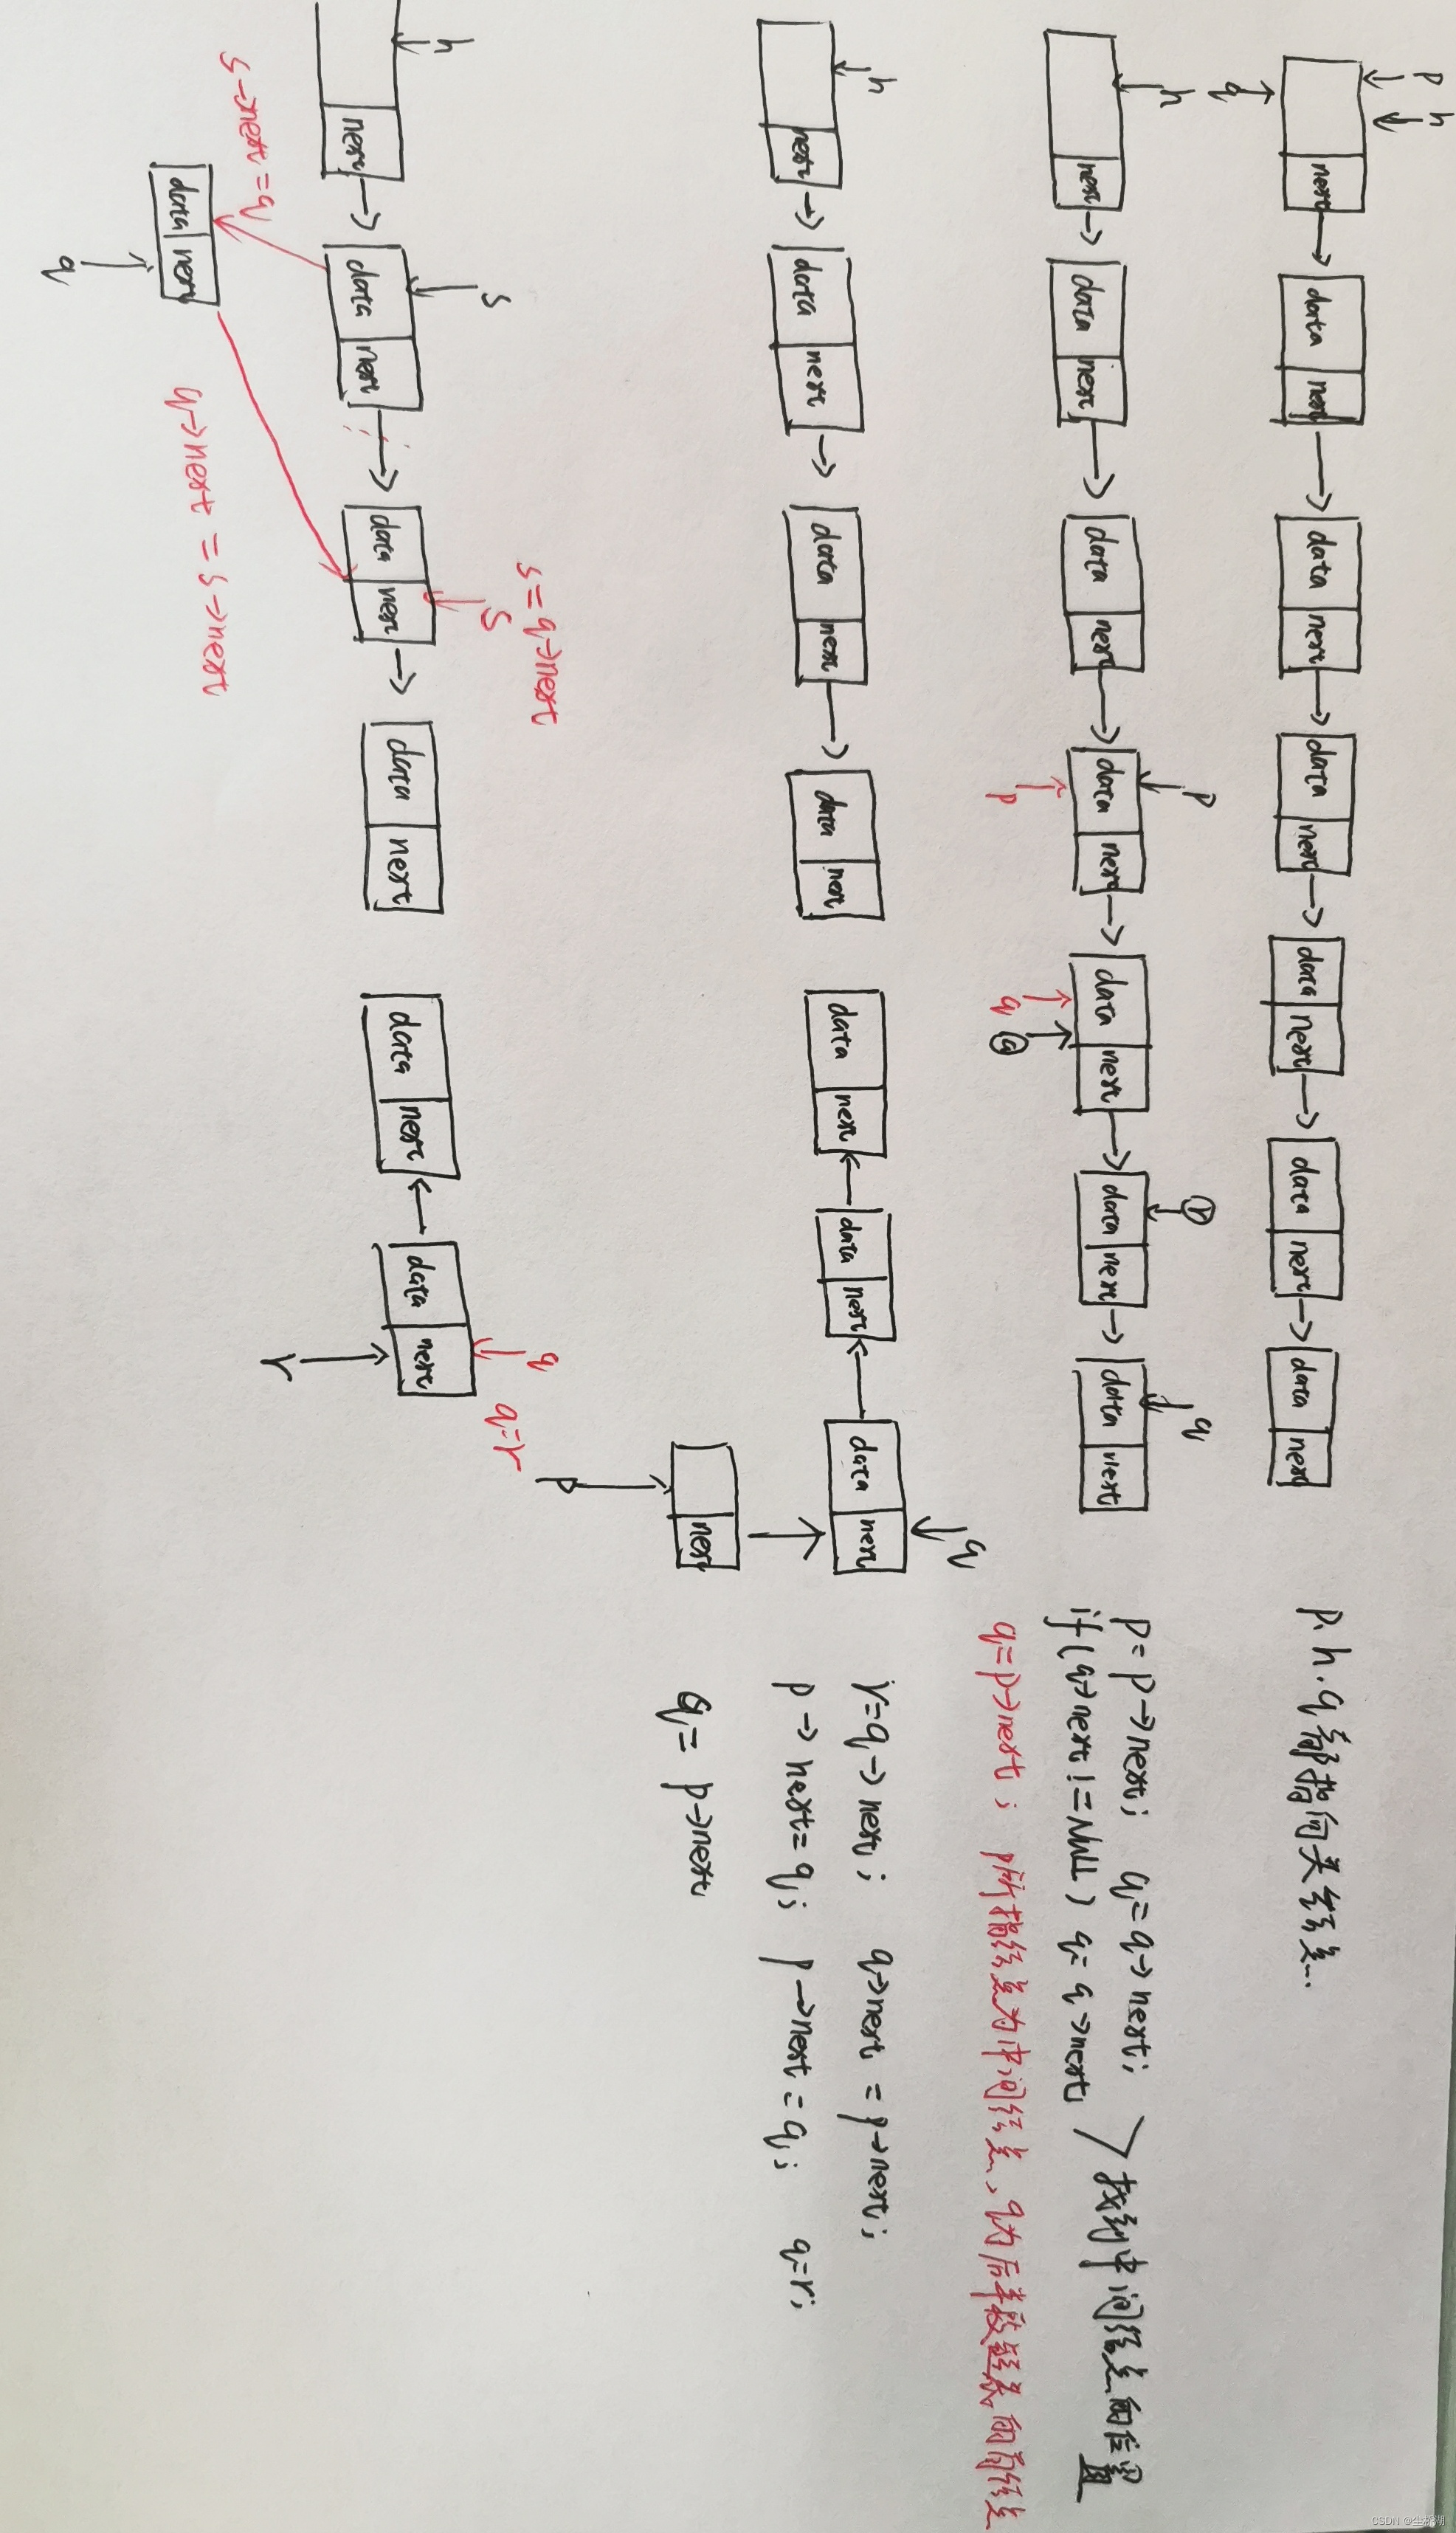 p h
q
next data next data next data next data next data next data next
p、h、q都指向头结点.
h p ⓑ q
next data next data next data next data next data next data next
p q ⓐ
p=p->next; q=q->next;
if(q->next!=NULL) q=q->next
找到中间结点的位置
q=p->next; p所指结点为中间结点、q为后半段链表的首结点
h q
next data next data next data next data next data next data next
p next
r=q->next; q->next=p->next;
p->next=q; p->next=q; q=r;
q=p->next
s=q->next
h s s q
next data next data next data next data next data next
q=r
r
s->next=q
data next
q
q->next=s->next
CSDN